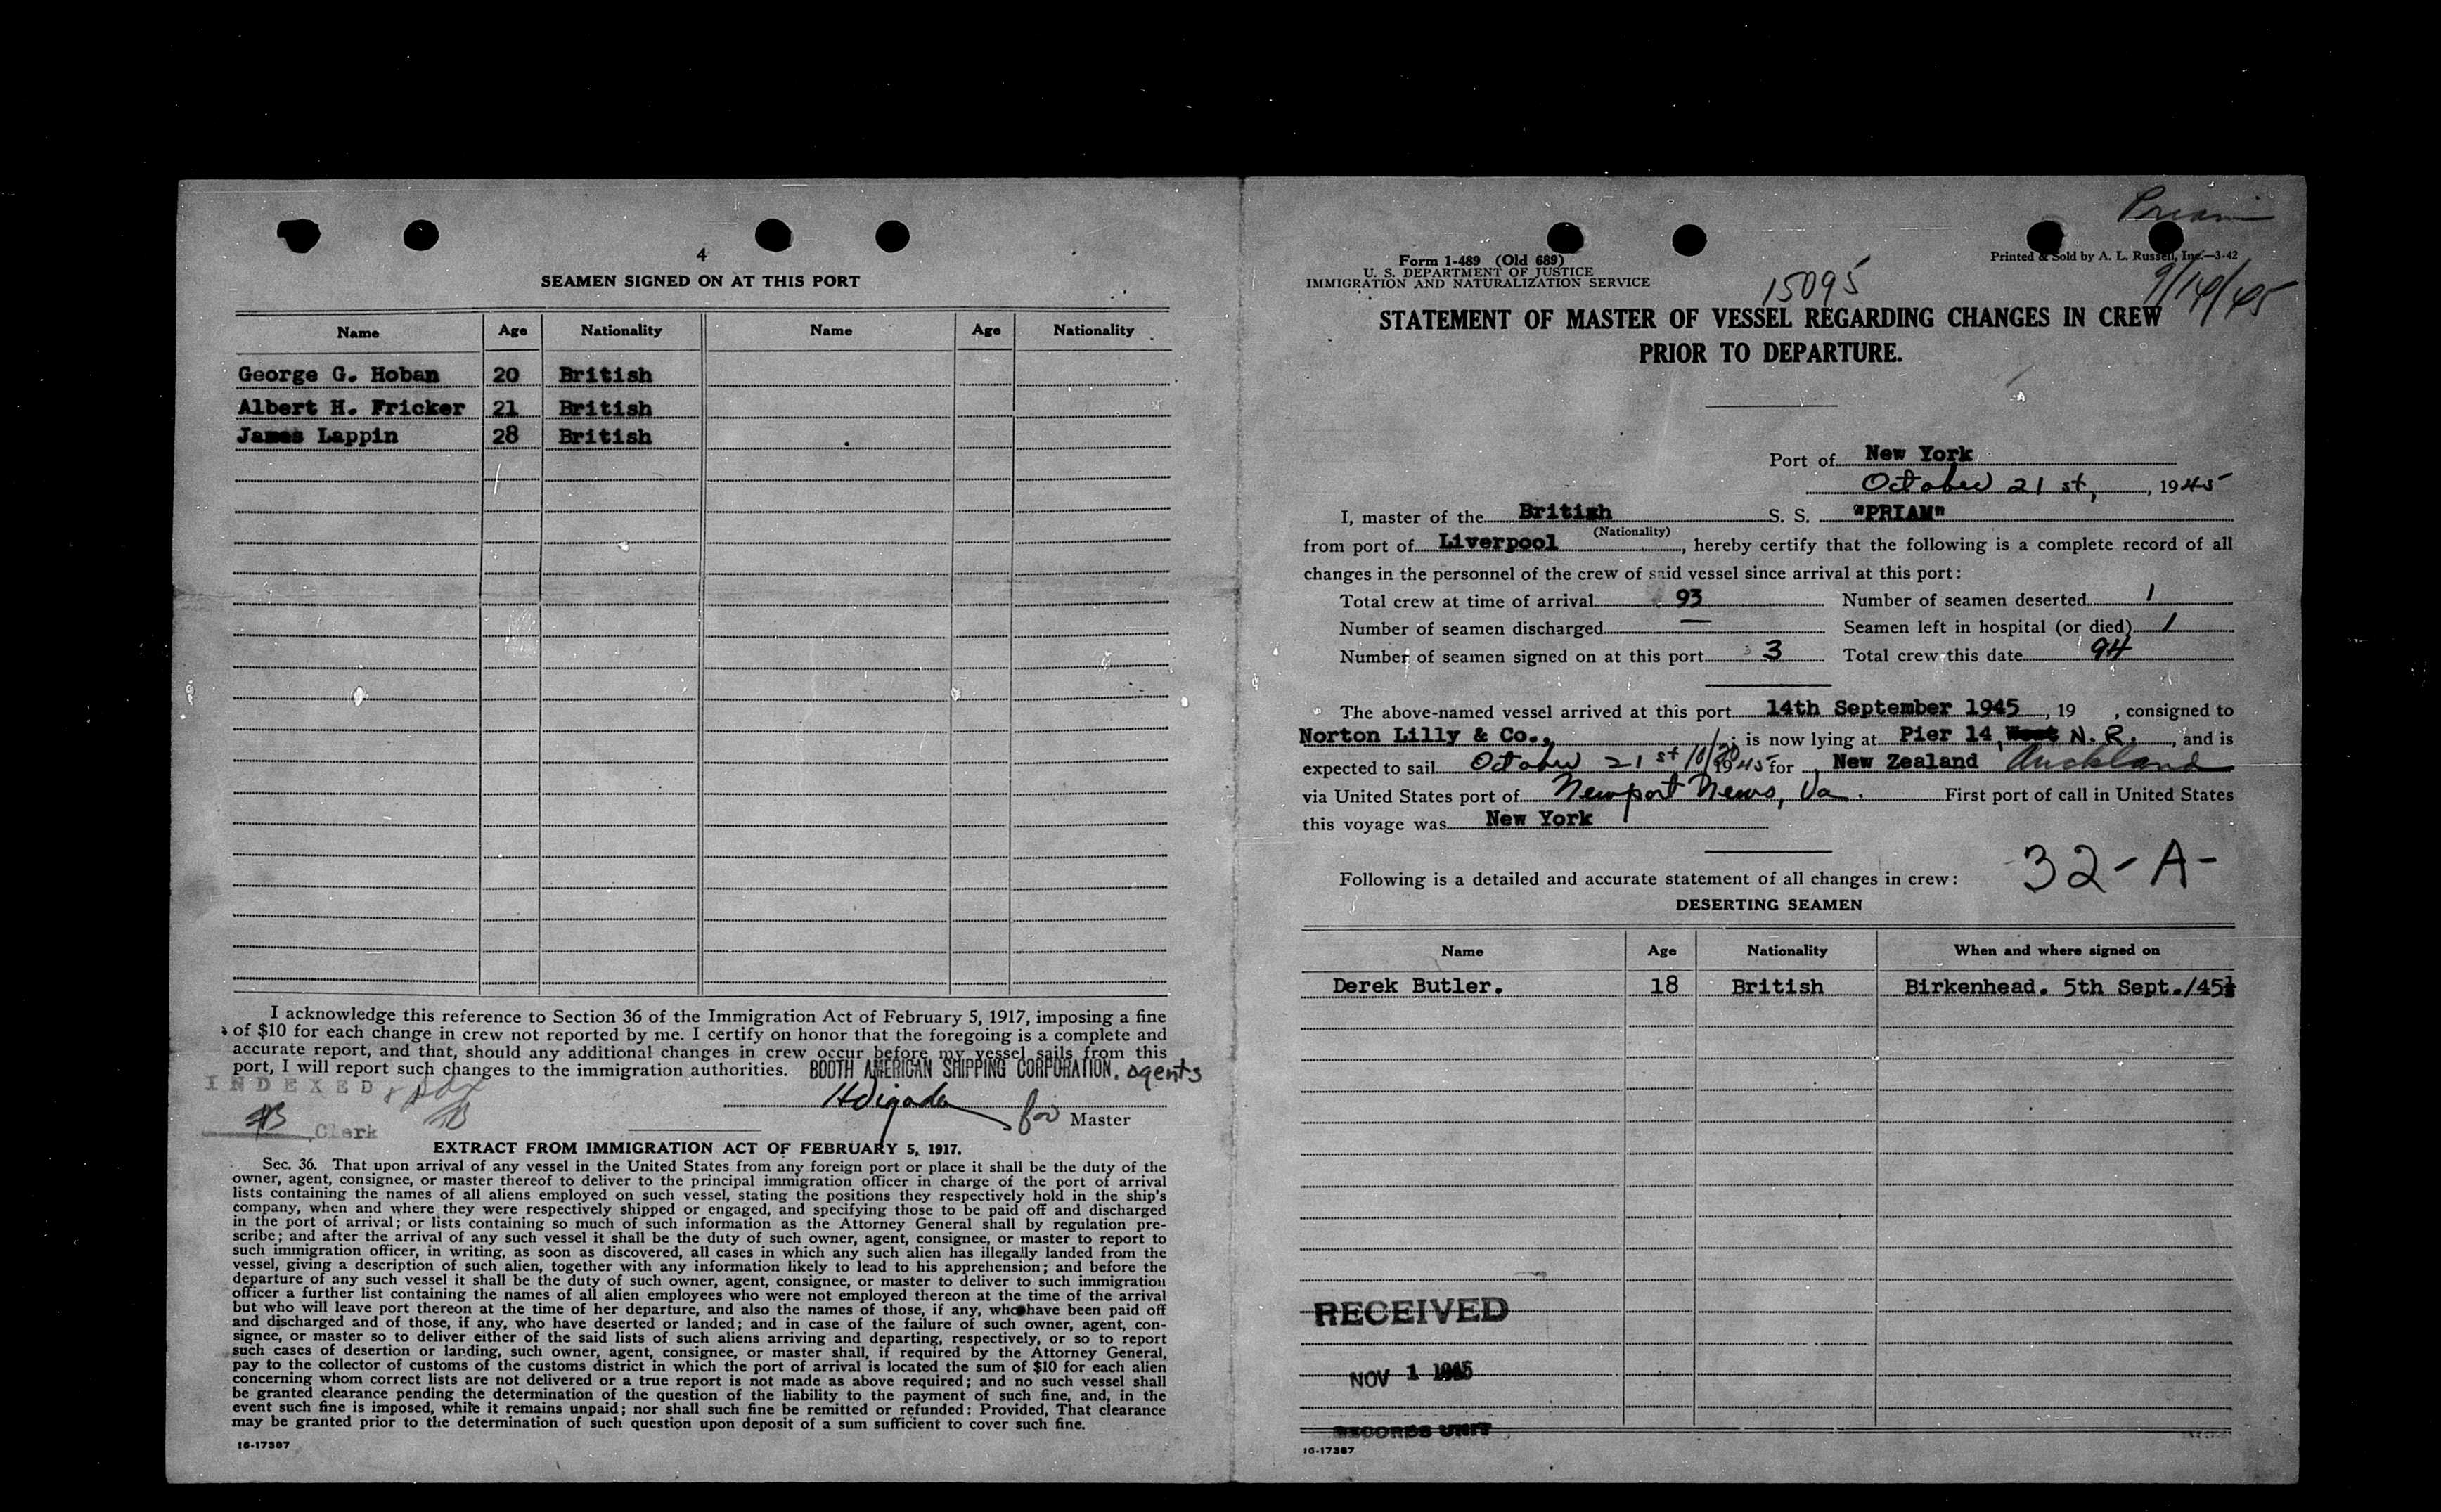 4
SEAMEN SIGNED ON AT THIS PORT
Name Age Nationality Name Age Nationality
George G. Hoban 20 British
Albert H. Fricker 21 British
James Lappin 28 British
I acknowledge this reference to Section 36 of the Immigration Act of February 5, 1917, imposing a fine
of $10 for each change in crew not reported by me. I certify on honor that the foregoing is a complete and
accurate report, and that, should any additional changes in crew occur before my vessel sails from this
port, I will report such changes to the immigration authorities. BOOTH AMERICAN SHIPPING CORPORATION. agents
INDEXED
for Master
Clerk
EXTRACT FROM IMMIGRATION ACT OF FEBRUARY 5, 1917.
Sec. 36. That upon arrival of any vessel in the United States from any foreign port or place it shall be the duty of the
owner, agent, consignee, or master thereof to deliver to the principal immigration officer in charge of the port of arrival
lists containing the names of all aliens employed on such vessel, stating the positions they respectively hold in the ship's
company, when and where they were respectively shipped or engaged, and specifying those to be paid off and discharged
in the port of arrival; or lists containing so much of such information as the Attorney General shall by regulation pre-
scribe; and after the arrival of any such vessel it shall be the duty of such owner, agent, consignee, or master to report to
such immigration officer, in writing, as soon as discovered, all cases in which any such alien has illegally landed from the
vessel, giving a description of such alien, together with any information likely to lead to his apprehension; and before the
departure of any such vessel it shall be the duty of such owner, agent, consignee, or master to deliver to such immigration
officer a further list containing the names of all alien employees who were not employed thereon at the time of the arrival
but who will leave port thereon at the time of her departure, and also the names of those, if any, who have been paid off
and discharged and of those, if any, who have deserted or landed; and in case of the failure of such owner, agent, con-
signee, or master so to deliver either of the said lists of such aliens arriving and departing, respectively, or so to report
such cases of desertion or landing, such owner, agent, consignee, or master shall, if required by the Attorney General,
pay to the collector of customs of the customs district in which the port of arrival is located the sum of $10 for each alien
concerning whom correct lists are not delivered or a true report is not made as above required; and no such vessel shall
be granted clearance pending the determination of the question of the liability to the payment of such fine, and, in the
event such fine is imposed, while it remains unpaid; nor shall such fine be remitted or refunded: Provided, That clearance
may be granted prior to the determination of such question upon deposit of a sum sufficient to cover such fine.
16-17387
Priam
Form 1-489 (Old 689)
U. S. DEPARTMENT OF JUSTICE
IMMIGRATION AND NATURALIZATION SERVICE
Printed & Sold by A. L. Russell, Inc.—3-42
15095
9/14/45
STATEMENT OF MASTER OF VESSEL REGARDING CHANGES IN CREW
PRIOR TO DEPARTURE.
Port of New York
October 21 st, , 1945
I, master of the British S. S. "PRIAM"
(Nationality)
from port of Liverpool , hereby certify that the following is a complete record of all
changes in the personnel of the crew of said vessel since arrival at this port:
Total crew at time of arrival 93 Number of seamen deserted 1
Number of seamen discharged — Seamen left in hospital (or died) 1
Number of seamen signed on at this port 3 Total crew this date 94
The above-named vessel arrived at this port 14th September 1945 , 19 , consigned to
Norton Lilly & Co., ; is now lying at Pier 14, West N. R. , and is
expected to sail October 21 st 10/20 1945 for New Zealand Auckland
via United States port of Newport News, Va. First port of call in United States
this voyage was New York
32-A-
Following is a detailed and accurate statement of all changes in crew:
DESERTING SEAMEN
Name Age Nationality When and where signed on
Derek Butler. 18 British Birkenhead. 5th Sept./45
RECEIVED
NOV 1 1945
RECORDS UNIT
16-17387